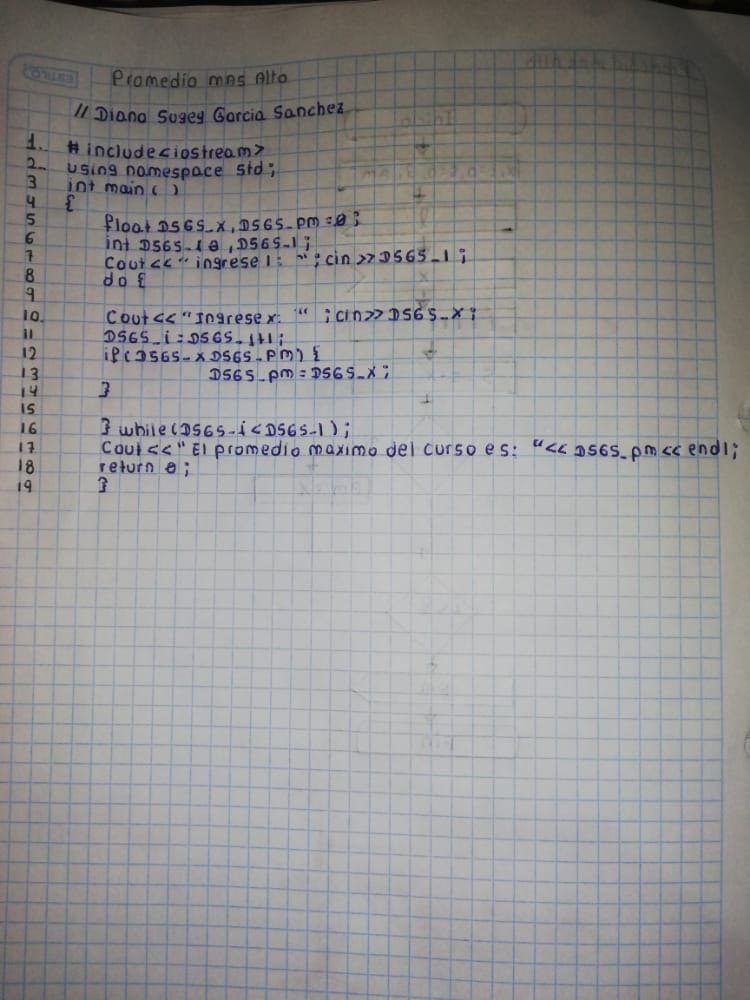 Promedio mas Alto
// Diana Sugey Garcia Sanchez
1. # include<iostream>
2. using namespace std;
3 int main ( )
4 {
5 float DSGS_x, DSGS_pm=0;
6 int DSGS_i 0, DSGS_l;
7 Cout<<"ingrese l: "; cin>>DSGS_l;
8 do {
9
10. Cout<<"Ingrese x: " ; cin>> DSGS_x;
11 DSGS_i=DSGS_i+1;
12 if(DSGS_x DSGS_pm) {
13 DSGS_pm=DSGS_x;
14 }
15
16 } while(DSGS_i<DSGS_l);
17 Cout<<"El promedio maximo del curso es: "<< DSGS_pm<< endl;
18 return 0;
19 }